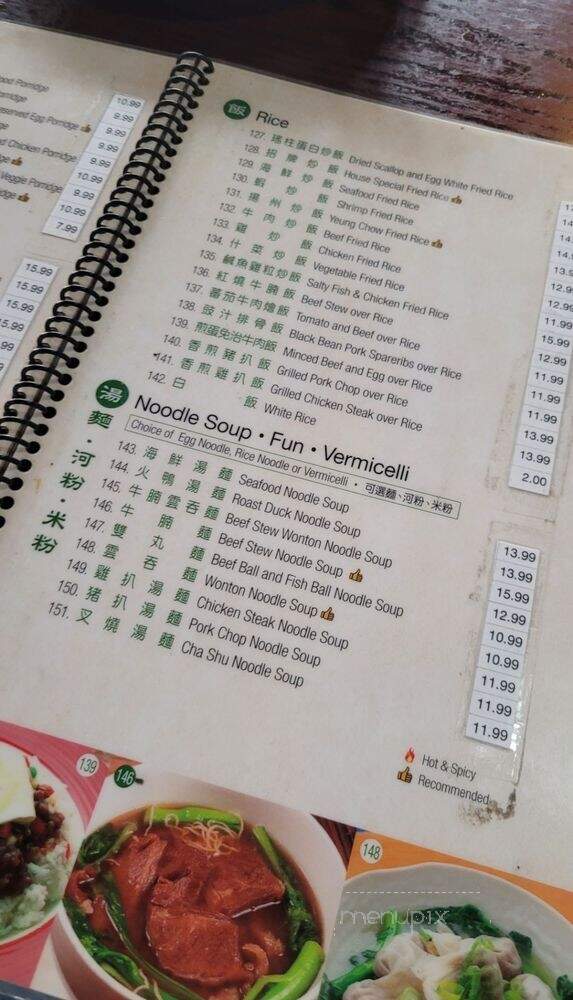 ood Porridge
orridge
eserved Egg Porridge
d Chicken Porridge
Veggie Porridge
10.99
9.99
9.99
9.99
9.99
10.99
7.99
15.99
15.99
15.99
15.99
飯 Rice
127. 瑤柱蛋白炒飯 Dried Scallop and Egg White Fried Rice
128. 招牌炒飯 House Special Fried Rice
129. 海鮮炒飯 Seafood Fried Rice
130. 蝦炒飯 Shrimp Fried Rice
131. 揚州炒飯 Yeung Chow Fried Rice
132. 牛肉炒飯 Beef Fried Rice
133. 雞炒飯 Chicken Fried Rice
134. 什菜炒飯 Vegetable Fried Rice
135. 鹹魚雞粒炒飯 Salty Fish & Chicken Fried Rice
136. 紅燒牛腩飯 Beef Stew over Rice
137. 蕃茄牛肉燴飯 Tomato and Beef over Rice
138. 豉汁排骨飯 Black Bean Pork Spareribs over Rice
139. 煎蛋免治牛肉飯 Minced Beef and Egg over Rice
140. 香煎豬扒飯 Grilled Pork Chop over Rice
141. 香煎雞扒飯 Grilled Chicken Steak over Rice
142. 白飯 White Rice
12.99
15.99
12.99
11.99
11.99
11.99
13.99
13.99
2.00
湯麵·河粉·米粉
Noodle Soup • Fun • Vermicelli
Choice of Egg Noodle, Rice Noodle or Vermicelli • 可選麵、河粉、米粉
143. 海鮮湯麵 Seafood Noodle Soup 13.99
144. 火鴨湯麵 Roast Duck Noodle Soup 13.99
145. 牛腩雲吞麵 Beef Stew Wonton Noodle Soup 15.99
146. 牛腩麵 Beef Stew Noodle Soup 12.99
147. 雙丸麵 Beef Ball and Fish Ball Noodle Soup 10.99
148. 雲吞麵 Wonton Noodle Soup 10.99
149. 雞扒湯麵 Chicken Steak Noodle Soup 11.99
150. 豬扒湯麵 Pork Chop Noodle Soup 11.99
151. 叉燒湯麵 Cha Shu Noodle Soup 11.99
Hot & Spicy
Recommended
139
146
148
menupix